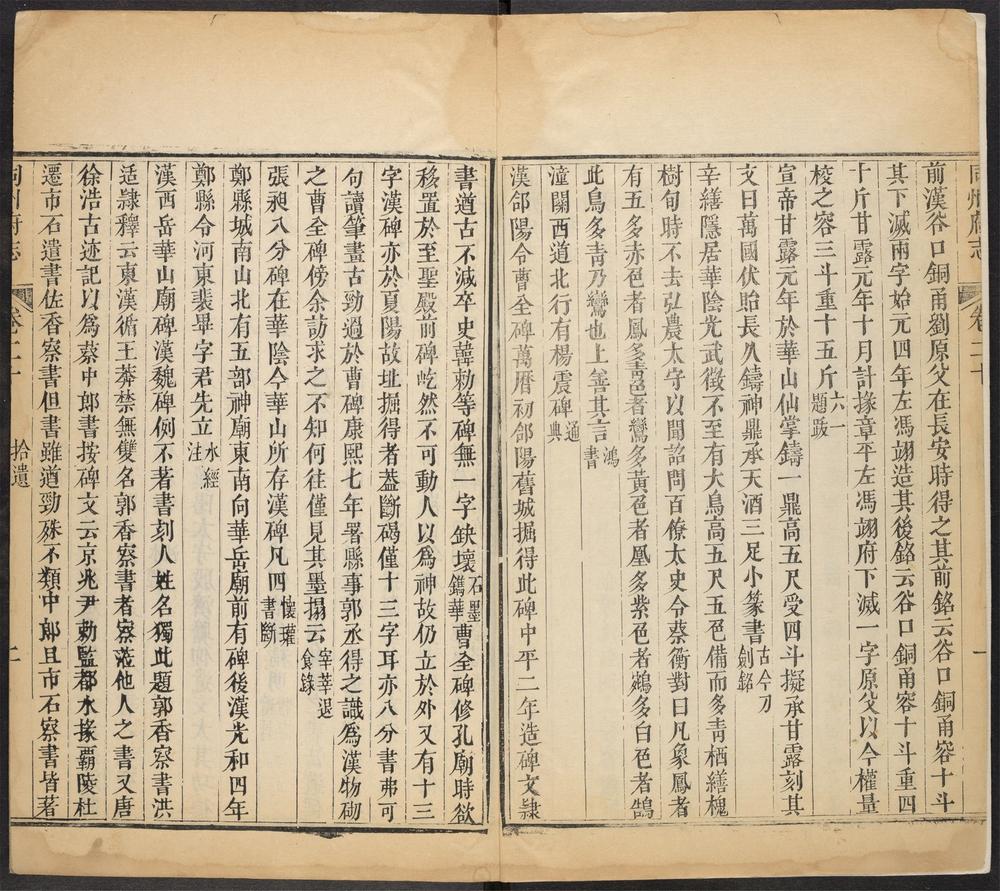 同州府志 卷二十 一
前漢谷口銅甬劉原父在長安時得之其前銘云谷口銅甬容十斗
其下滅兩字始元四年左馮翊造其後銘云谷口銅甬容十斗重四
十斤甘露元年十月計掾章平左馮翊府下滅一字原父以今權量
校之容三斗重十五斤六一題跋
宣帝甘露元年於華山仙掌鑄一鼎高五尺受四斗擬承甘露刻其
文曰萬國伏貽長久鑄神鼎承天酒三足小篆書古今刀劍銘
辛繕隱居華陰光武徵不至有大鳥高五尺五色備而多青栖繕槐
樹旬時不去弘農太守以聞詔問百僚太史令蔡衡對曰凡象鳳者
有五多赤色者鳳多青色者鸞多黃色者凰多紫色者鵷多白色者鵠
此鳥多青乃鸞也上善其言鴻書
潼關西道北行有楊震碑通典
漢郃陽令曹全碑萬曆初郃陽舊城掘得此碑中平二年造碑文隸
書遒古不減卒史韓勅等碑無一字缺壞石墨鐫華曹全碑修孔廟時欲
移置於至聖殿前碑屹然不可動人以為神故仍立於外又有十三
字漢碑亦於夏陽故址掘得者蓋斷碣僅十三字耳亦八分書弗可
句讀筆畫古勁過於曹碑康熙七年署縣事郭丞得之識為漢物砌
之曹全碑傍余訪求之不知何往僅見其墨搨云宰莘退食錄
張昶八分碑在華陰今華山所存漢碑凡四懷瓘書斷
鄭縣城南山北有五部神廟東南向華岳廟前有碑後漢光和四年
鄭縣令河東裴畢字君先立水經注
漢西岳華山廟碑漢魏碑例不著書刻人姓名獨此題郭香察書洪
适隸釋云東漢循王莽禁無雙名郭香察書者察蒞他人之書又唐
徐浩古迹記以為蔡中郎書按碑文云京兆尹勅監都水掾霸陵杜
遷市石遣書佐香察書但書雖遒勁殊不類中郎且市石察書皆著
同州府志 卷二十 拾遺 二